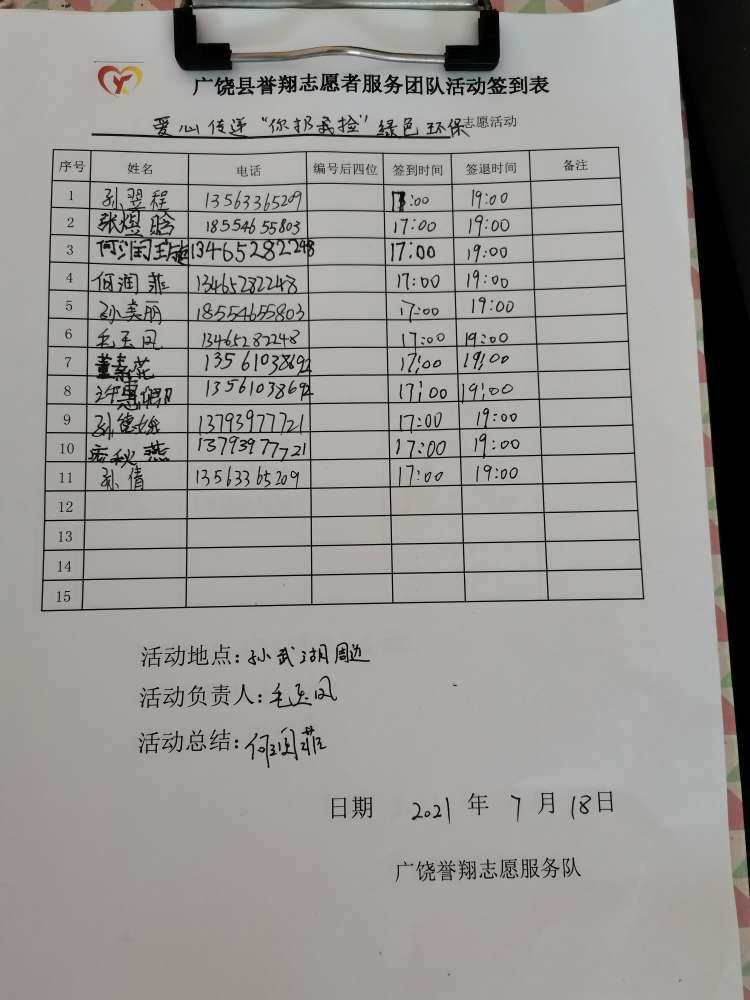 广饶县誉翔志愿者服务团队活动签到表
爱心传递“你扔我捡”绿色环保志愿活动
序号 姓名 电话 编号后四位 签到时间 签退时间 备注
1 孙翌程 13563365209 17:00 19:00
2 张煜晗 18554655803 17:00 19:00
3 何润 13465282248 17:00 19:00
4 何润菲 13465282248 17:00 19:00
5 孙美丽 18554655803 17:00 19:00
6 毛玉凤 13465282248 17:00 19:00
7 董春花 13561038692 17:00 19:00
8 许惠 13561038692 17:00 19:00
9 孙 13793977721 17:00 19:00
10 秋燕 13793977721 17:00 19:00
11 孙倩 13563365209 17:00 19:00
12
13
14
15
活动地点:孙武湖周边
活动负责人:毛玉凤
活动总结:何润菲
日期 2021 年 7 月 18日
广饶誉翔志愿服务队